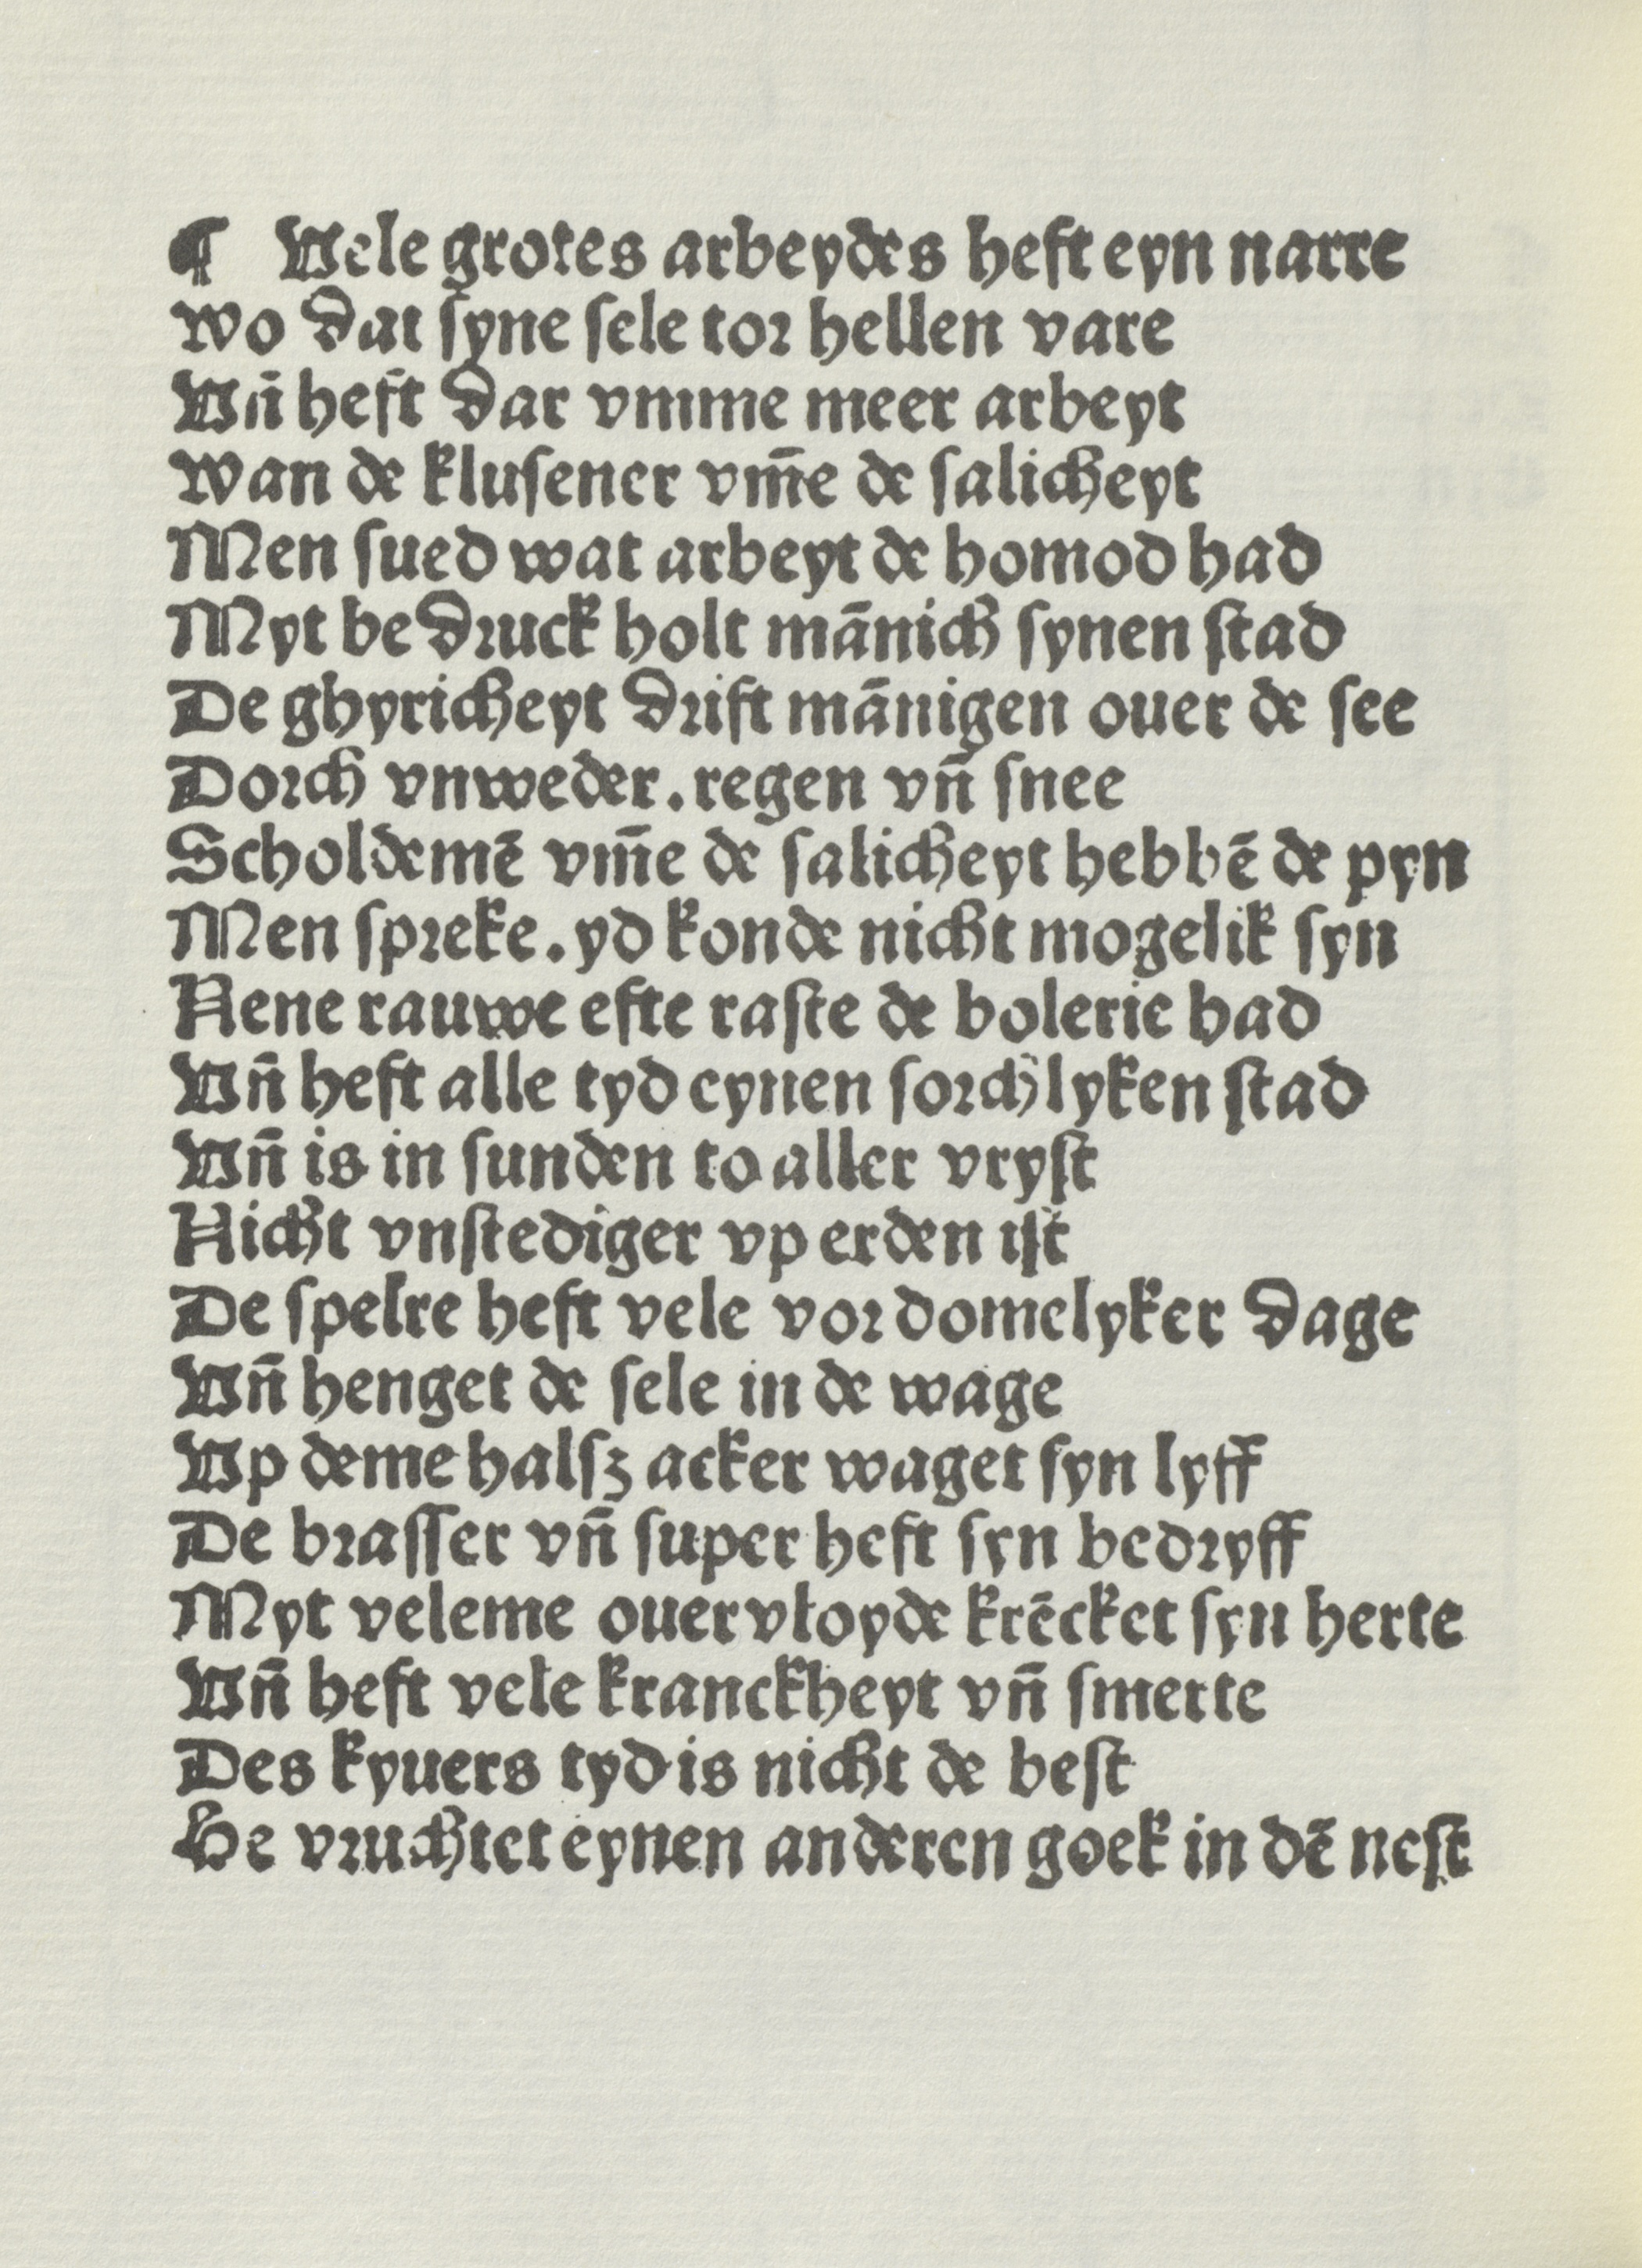 ¶ Vele grotes arbeydes heft eyn narre
wo dat syne sele tor hellen vare
Vn̄ heft dar vmme meer arbeyt
wan de klusener vm̄e de salicheyt
Men sued wat arbeyt de homod had
Myt bedruck holt mānich synen stad
De ghyricheyt drift mānigen ouer de see
Dorch vnweder. regen vn̄ snee
Scholdemē vm̄e de salicheyt hebbē de pyn
Men spreke. yd konde nicht mogelik syn
Nene rauwe efte raste de bolerie had
Vn̄ heft alle tyd eynen sorchlyken stad
Vn̄ is in sunden to aller vryst
Nicht vnstediger vp erden ist
De spelre heft vele vordomelyker dage
Vn̄ henget de sele in de wage
Vp deme halsz acker waget syn lyff
De brasser vn̄ super heft syn bedryff
Myt veleme ouervloyde krēcket syn herte
Vn̄ heft vele kranckheyt vn̄ smerte
Des kyuers tyd is nicht de best
He vruchtet eynen anderen goek in dē nest